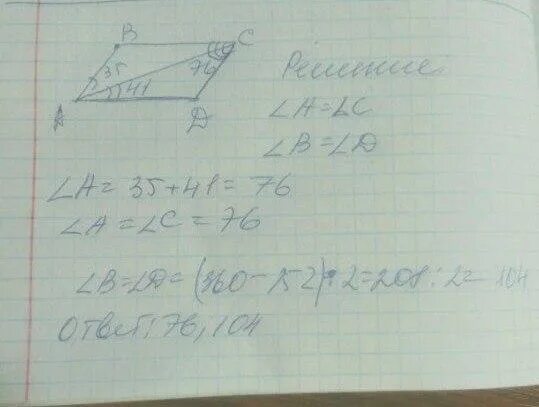 B
C
35
76
41
A
D
Решение.
∠A=∠C
∠B=∠D
∠A= 35+41= 76
∠A=∠C=76
∠B=∠D=(360-152):2=208:2= 104
Ответ: 76, 104